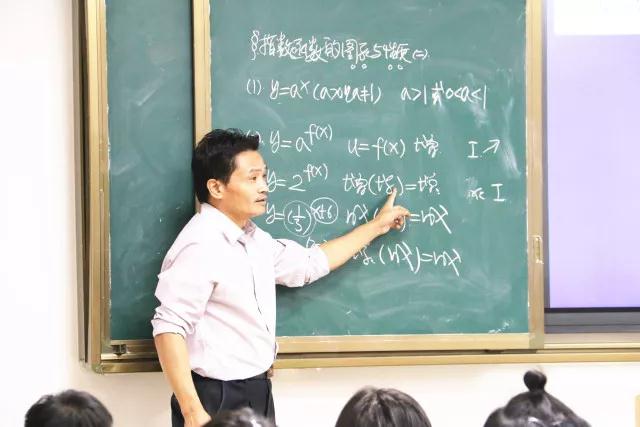 §指数函数的图象与性质(二)
(1) y=aˣ(a>0且a≠1) a>1 0<a<1
y=a^f(x) u=f(x) 增 I ↗
y=2^f(x) 增(增)=增 x∈I
y=(1/3)^x+6 减( )=减
(减)=减